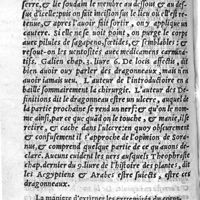 serre, & lie soudain le membre au dessoubz & au des-
sus d'icelle: puis on fait incision sur le lieu où elle est re-
tenuë, & apres l'avoir fait sortir, on y applique un
cautere. Si elle ne se voit point, on purge le corps
avec pilules de sagapeno fortides, & semblables: &
resout-on les ventositez avec medicamens carmina-
tifs. Galien chap. 3. livre 6. De locis affectis, dit
bien avoir ouy parler des dragonneaux, mais n'en
avoir iamais veu. L'auteur de l'introductoire en a
baillé sommairement la chirurgie. L'auteur des De-
finitions dit le dragonneau estre un ulcere, auquel
de la partie prochaine se rend un nerf: & qu'on le nom-
me ainsi, par ce que quand on le touche, il se reti-
re, & cache dans l'ulcere: en quoy obscurement
& confusement il s'approche de l'opinion de Sora-
nus, & comprend quelque partie de ce qu'avons de-
claré. Aucuns cuident les vers ausquels Theophraste
chap. dernier 9. livre de l'histoire des plantes, dit
les Aegyptiens & Arabes estre suiects, estre ces
dragonneaux.
La maniere d'exciser les extremités du corps